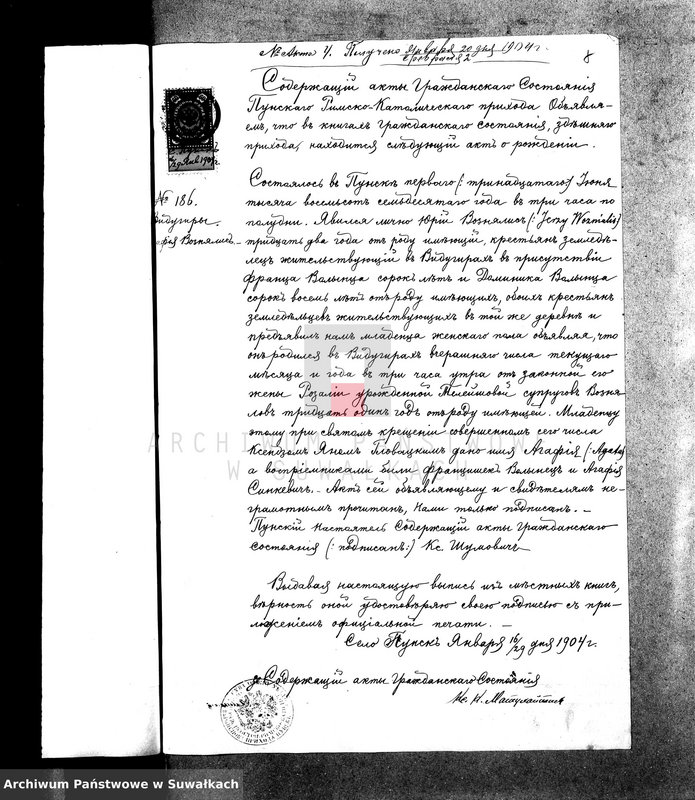 № Акта 4. Получено Января 20 дня 1904 г.
Февраля 2
8
Содержащій акты Гражданскаго Состоянія
Пунскаго Римско-Католическаго прихода Объявля-
емъ, что въ книгахъ Гражданскаго состоянія, здѣшняго
прихода, находится слѣдующій актъ о рожденіи.
16/29 Янв 1904 г.
№ 186.
Видугиры.
Агафія Вознялисъ.
Состоялось въ Пунскѣ перваго (: тринадцатаго) Іюня
тысяча восемьсотъ семьдесятаго года въ три часа по
полудни. Явился лично Юрій Вознялисъ (: Jerzy Woznialis)
тридцать два года отъ роду имѣющій, крестьян земледѣ-
лецъ жительствующій въ Видугирахъ въ присутствіи
Франца Валынца сорокъ лѣтъ и Доминика Валынца
сорокъ восемь лѣтъ отъ роду имѣющихъ, обоихъ крестьянъ
земледѣльцевъ жительствующихъ въ той же деревнѣ и
предъявилъ намъ младенца женскаго пола объявляя, что
онъ родился въ Видугирахъ вчерашняго числа текущаго
мѣсяца и года въ три часа утра отъ законной его
жены Розаліи урожденной Телейшовой супруговъ Возня-
ловъ тридцать одинъ годъ отъ роду имѣющей. Младенцу
этому при святомъ крещеніи совершенномъ сего числа
Ксендзомъ Яномъ Гловацкимъ дано имя Агафія (: Agata)
а воспріемниками были Францишекъ Валынецъ и Агафія
Синкевичъ. Актъ сей объявляющему и свидѣтелямъ не-
грамотнымъ прочитанъ, Нами только подписанъ. —
Пунскій Настоятель Содержащій акты Гражданскаго
состоянія (: подписанъ:) Кс. Шумовичъ
Выдавая настоящую выпись изъ мѣстныхъ книгъ,
вѣрность оной удостовѣряю своею подписью съ при-
ложеніемъ официальной печати. —
Село Пунскъ Января 16/29 дня 1904 г.
Содержащій акты Гражданскаго Состоянія
Кс. Н. Матулайтисъ
ARCHIWUM PAŃSTWOWE
W SUWAŁKACH
Archiwum Państwowe w Suwałkach